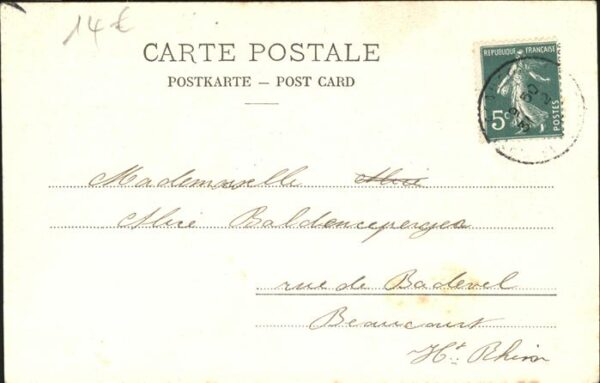 14 €
CARTE POSTALE
POSTKARTE – POST CARD
REPUBLIQUE FRANÇAISE
5c
POSTES
Mademoiselle Alice
Alice Baldenceperger
rue de Badevel
Beaucourt
Ht. Rhin